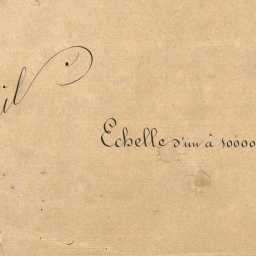 il
Echelle d'un à 10000